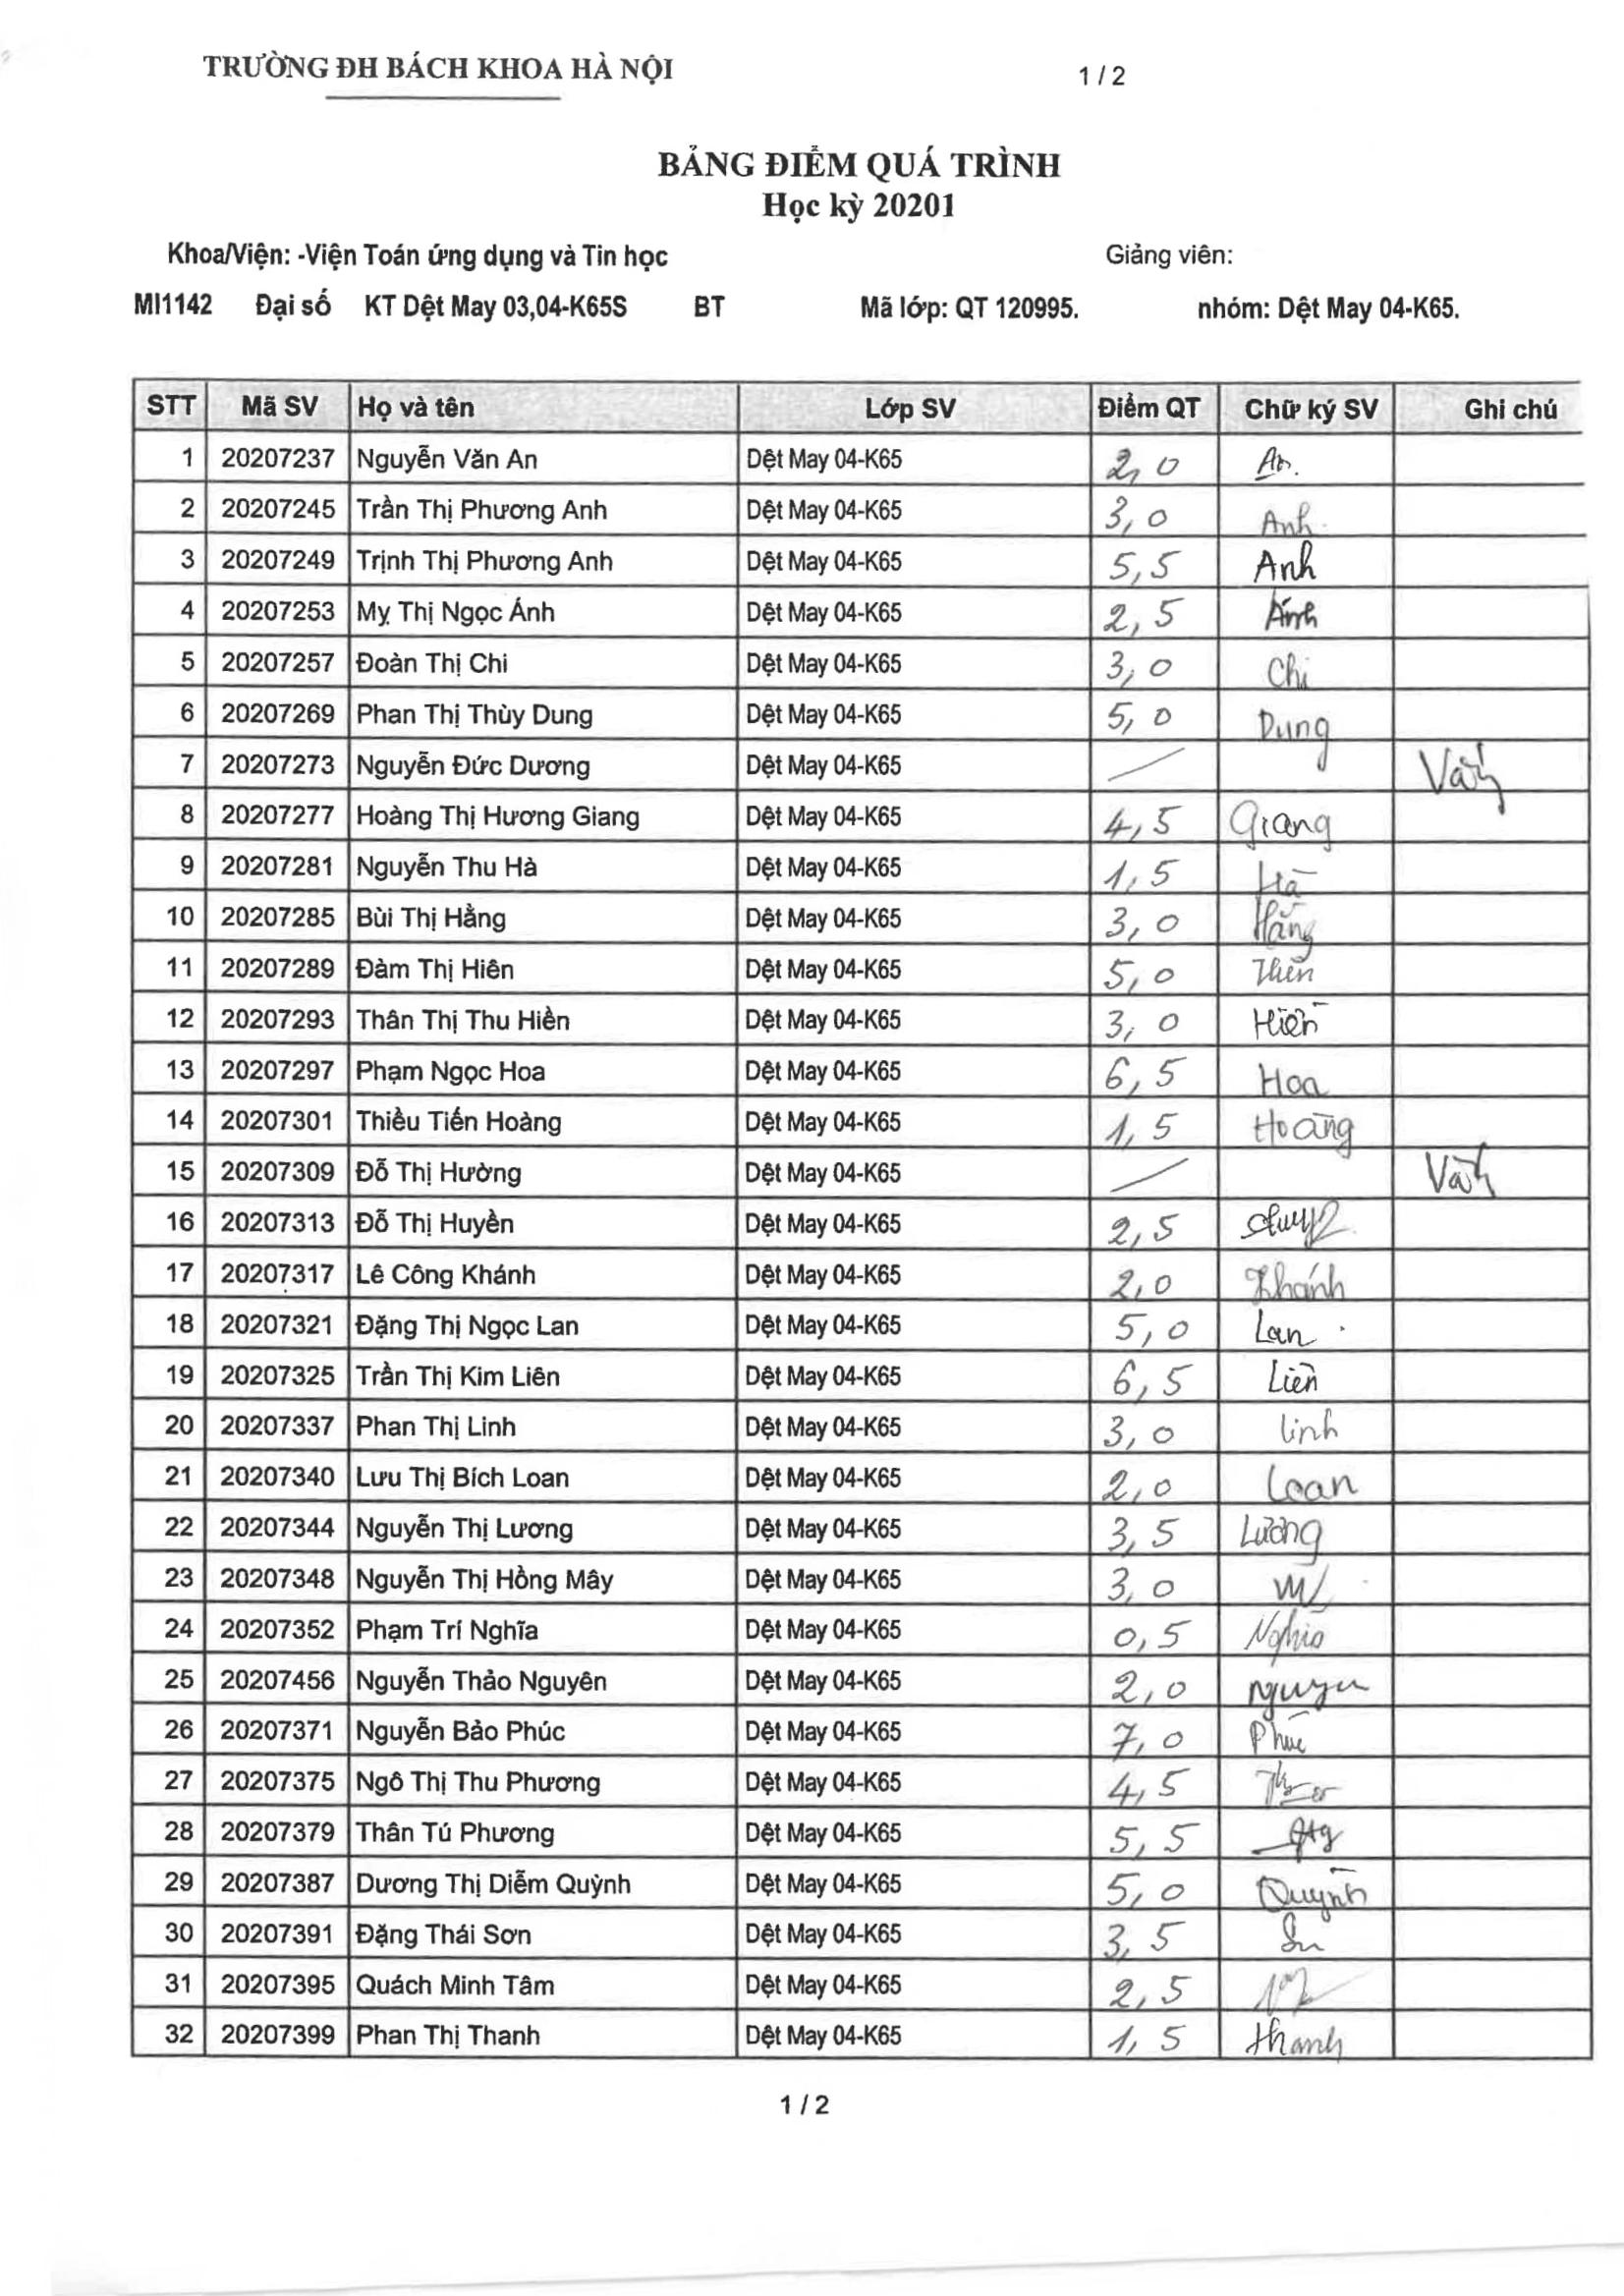 TRƯỜNG ĐH BÁCH KHOA HÀ NỘI 1 / 2
BẢNG ĐIỂM QUÁ TRÌNH
Học kỳ 20201
Khoa/Viện: -Viện Toán ứng dụng và Tin học Giảng viên:
MI1142 Đại số KT Dệt May 03,04-K65S BT Mã lớp: QT 120995. nhóm: Dệt May 04-K65.
STT Mã SV Họ và tên Lớp SV Điểm QT Chữ ký SV Ghi chú
1 20207237 Nguyễn Văn An Dệt May 04-K65 2,0 An.
2 20207245 Trần Thị Phương Anh Dệt May 04-K65 3,0 Anh
3 20207249 Trịnh Thị Phương Anh Dệt May 04-K65 5,5 Anh
4 20207253 Mỵ Thị Ngọc Ánh Dệt May 04-K65 2,5 Ánh
5 20207257 Đoàn Thị Chi Dệt May 04-K65 3,0 Chi
6 20207269 Phan Thị Thùy Dung Dệt May 04-K65 5,0 Dung
7 20207273 Nguyễn Đức Dương Dệt May 04-K65 Vắng
8 20207277 Hoàng Thị Hương Giang Dệt May 04-K65 4,5 Giang
9 20207281 Nguyễn Thu Hà Dệt May 04-K65 1,5 Hà
10 20207285 Bùi Thị Hằng Dệt May 04-K65 3,0 Hằng
11 20207289 Đàm Thị Hiên Dệt May 04-K65 5,0 Hiên
12 20207293 Thân Thị Thu Hiền Dệt May 04-K65 3,0 Hiền
13 20207297 Phạm Ngọc Hoa Dệt May 04-K65 6,5 Hoa
14 20207301 Thiều Tiến Hoàng Dệt May 04-K65 1,5 Hoàng
15 20207309 Đỗ Thị Hường Dệt May 04-K65 Vắng
16 20207313 Đỗ Thị Huyền Dệt May 04-K65 2,5
17 20207317 Lê Công Khánh Dệt May 04-K65 2,0 Khánh
18 20207321 Đặng Thị Ngọc Lan Dệt May 04-K65 5,0 Lan
19 20207325 Trần Thị Kim Liên Dệt May 04-K65 6,5 Liên
20 20207337 Phan Thị Linh Dệt May 04-K65 3,0 Linh
21 20207340 Lưu Thị Bích Loan Dệt May 04-K65 2,0 Loan
22 20207344 Nguyễn Thị Lương Dệt May 04-K65 3,5 Lương
23 20207348 Nguyễn Thị Hồng Mây Dệt May 04-K65 3,0
24 20207352 Phạm Trí Nghĩa Dệt May 04-K65 0,5 Nghĩa
25 20207456 Nguyễn Thảo Nguyên Dệt May 04-K65 2,0 Nguyen
26 20207371 Nguyễn Bảo Phúc Dệt May 04-K65 7,0 Phúc
27 20207375 Ngô Thị Thu Phương Dệt May 04-K65 4,5
28 20207379 Thân Tú Phương Dệt May 04-K65 5,5
29 20207387 Dương Thị Diễm Quỳnh Dệt May 04-K65 5,0 Quỳnh
30 20207391 Đặng Thái Sơn Dệt May 04-K65 3,5
31 20207395 Quách Minh Tâm Dệt May 04-K65 2,5
32 20207399 Phan Thị Thanh Dệt May 04-K65 1,5 Thanh
1 / 2